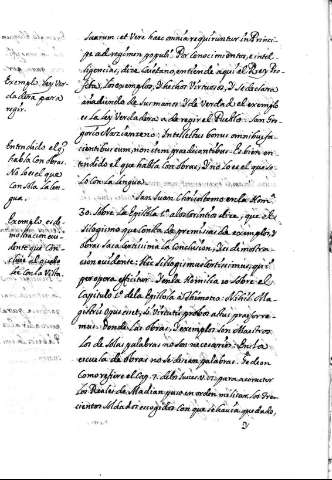 suarum: et Vere haec omnia requiruntur in Princi
pe ad regimen populi. Por conocimiento, e intel
ligencias, dize Caietano, entiende aquí el Rey Pro
feta, los exemplos, y hechos Virtuosos, y se declara
añadiendo de sus manos y de verdad el exemplo
es la ley Verdadera a de regir el Pueblo. San Gre
gorio Nazianzeno:
eum, non etiam praedicantibus. Es bien en
tendido el que habla con obras, y no lo es el que so
lo con la lengua.
San Juan Chrisostomo en la Hom.
30. sobre la Epistola 1ª a los Corintios dize, que es
silogismo que consta de premisas de exemplos, y
obras sacar la conclusion, y es demostra
cion evidente: Hic sillogismus
per opera efficitur. Y en la Homilia sobre el
Capitulo 1º de la Epistola a Thimoteo: Nihil Ma
gistris opus est, si Virtutis probos actus
mus. Donde las obras, y exemplos son Maestros
los de las palabras no son necesarios. En la
escuela de obras no se desean palabras. Gedeon
como refiere el Cap. 7. de los Jueces para acometer
los Reales de Madian puso en orden militar los Tre
cientos Soldados escogidos con que se havia quedado,
y
Exemplo ley Ver
dadera para
regir.
Entendido el q̃
habla con obras.
No lo es el que
con sola la len
gua.
Exemplo es de
mostracion evi
dente que con
cluie al pueblo
con la Vista.